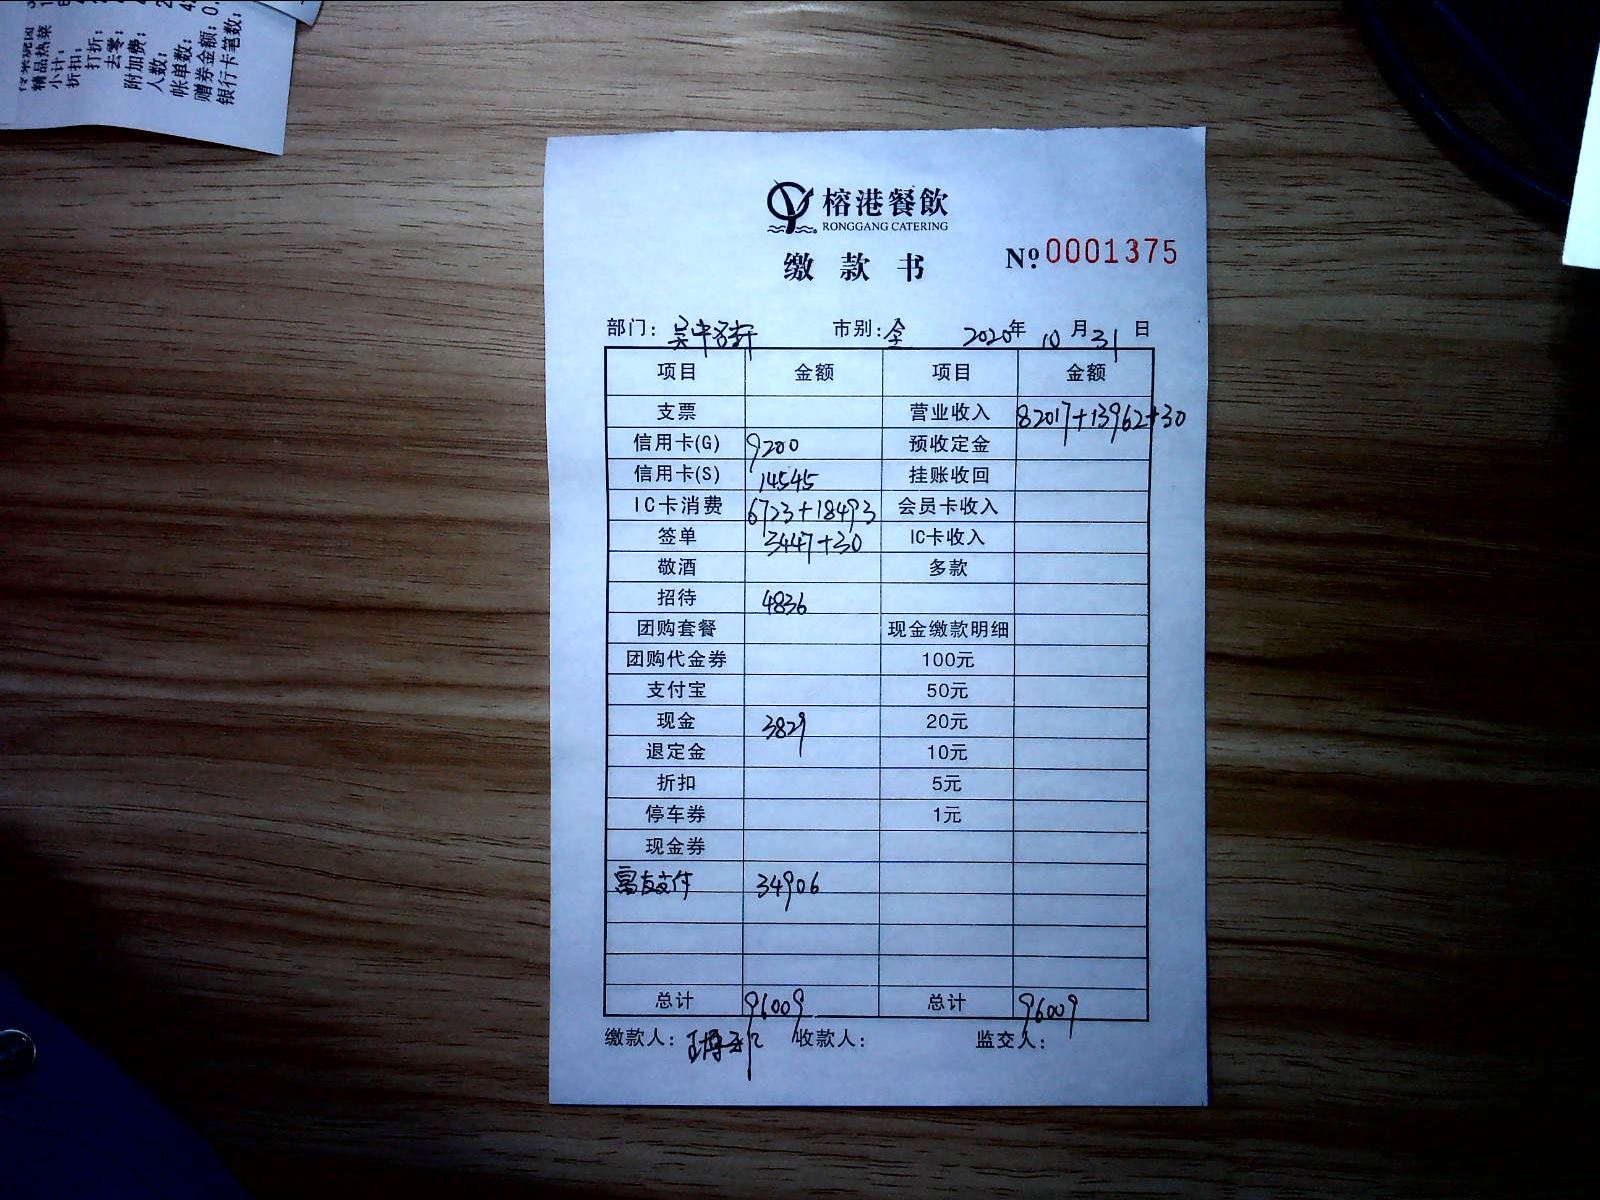 精品热菜
小计:
折扣:
打折:
去零:
附加费:
人数:
帐单数:
赠券金额: 0.
银行卡笔数:
榕港餐飲
RONGGANG CATERING
缴款书 №0001375
部门: 吴中 市别: 全 2020年 10月31日
项目 金额 项目 金额
支票 营业收入 82017+13962+30
信用卡(G) 9200 预收定金
信用卡(S) 14545 挂账收回
IC卡消费 6723+18493 会员卡收入
签单 3447+30 IC卡收入
敬酒 多款
招待 4836
团购套餐 现金缴款明细
团购代金券 100元
支付宝 50元
现金 3829 20元
退定金 10元
折扣 5元
停车券 1元
现金券
富友支付 34906
总计 96009 总计 96009
缴款人: 王 收款人: 监交人: